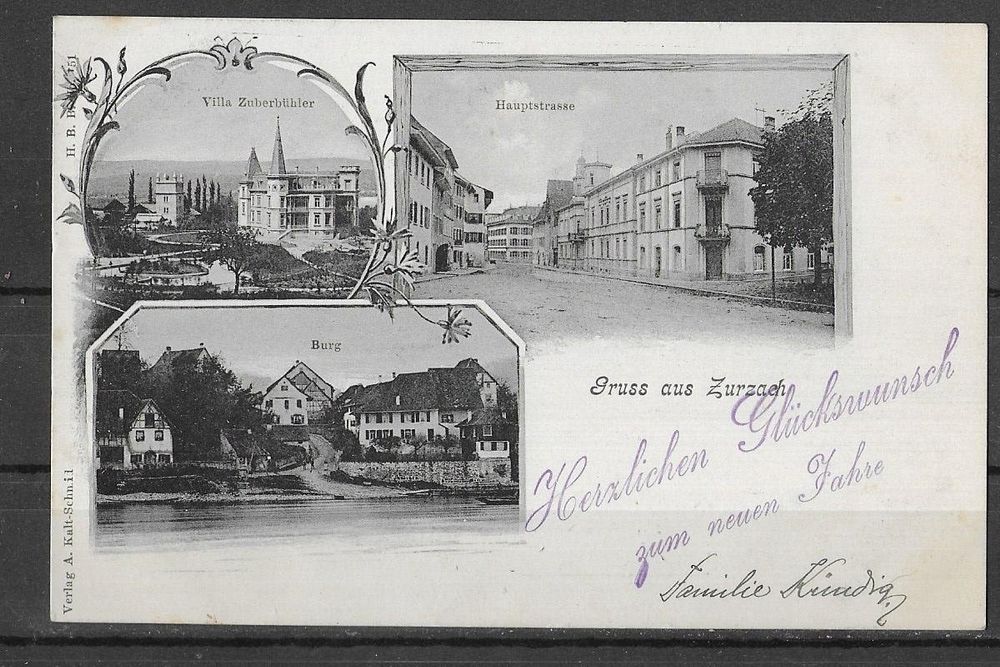 Villa Zuberbühler
Hauptstrasse
Burg
Gruss aus Zurzach
Herzlichen Glückswunsch
zum neuen Jahre
Familie Kündig
Verlag A. Kalt-Schmid
H. B. B. 751